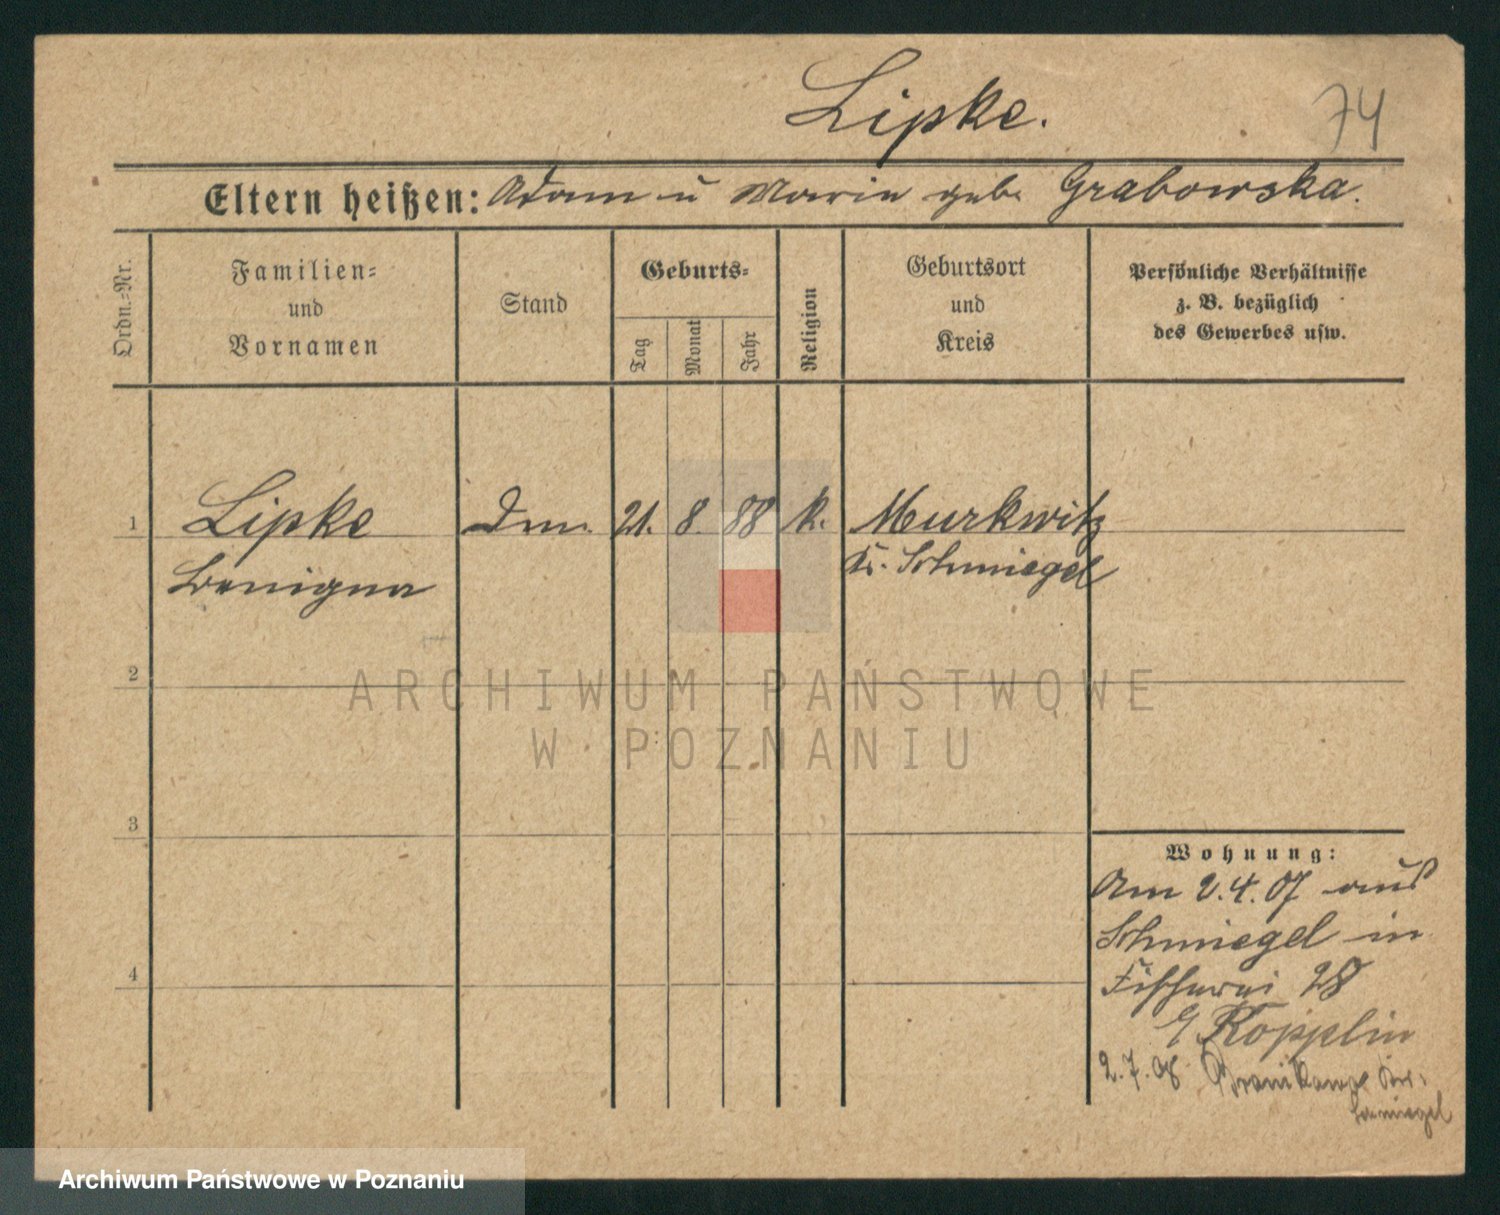 Lipke.
74
Eltern heißen: Adam u Marie geb. Grabowska.
Ordn.=Nr.
Familien=
und
Vornamen
Stand
Geburts=
Tag
Monat
Jahr
Religion
Geburtsort
und
Kreis
Persönliche Verhältnisse
z. B. bezüglich
des Gewerbes usw.
1 Lipke 21. 8. 88 k. Murkwitz
Benigna Kr. Schmiegel
2
3
4
Wohnung:
Am 2.4.07 aus
Schmiegel in
Fischerei 28
Kopplin
2.7.08 Kr.
Schmiegel
ARCHIWUM PAŃSTWOWE
W POZNANIU
Archiwum Państwowe w Poznaniu